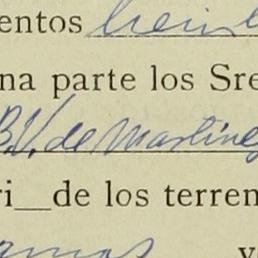 entos trein
na parte los Sre
B.V. de Martinez
ri__de los terren
y